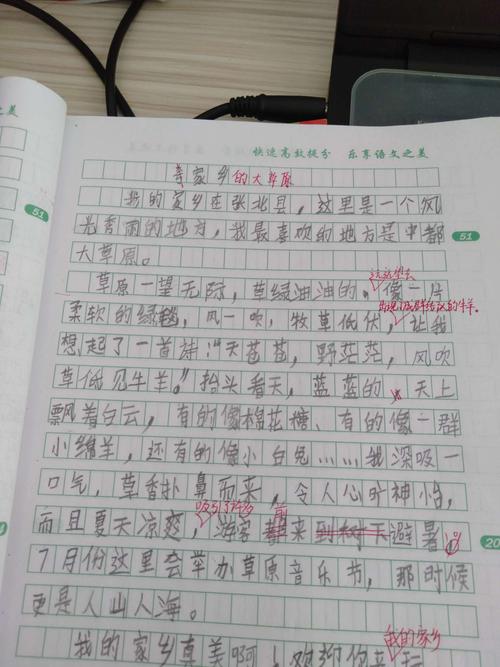 之美
快速高效提分 乐享语文之美
善家乡的大草原
我的家乡在张北县，这里是一个风
光秀丽的地方，我最喜欢的地方是中都
51
51
大草原。
远远望去
草原一望无际，草绿油油的，像一片
出现了成群结队的牛羊。
柔软的绿毯，风一吹，牧草低伏，让我
想起了一首诗：“天苍苍，野茫茫，风吹
草低见牛羊。”抬头看天，蓝蓝的天上
飘着白云，有的像棉花糖、有的像一群
小绵羊，还有的像小白兔……我深吸一
口气，草香扑鼻而来，令人心旷神怡，
吸引了许多 前
而且夏天凉爽，游客来到树下避暑。
20
7月份这里会举办草原音乐节，那时候
更是人山人海。
我的家乡
我的家乡真美啊！欢迎你来